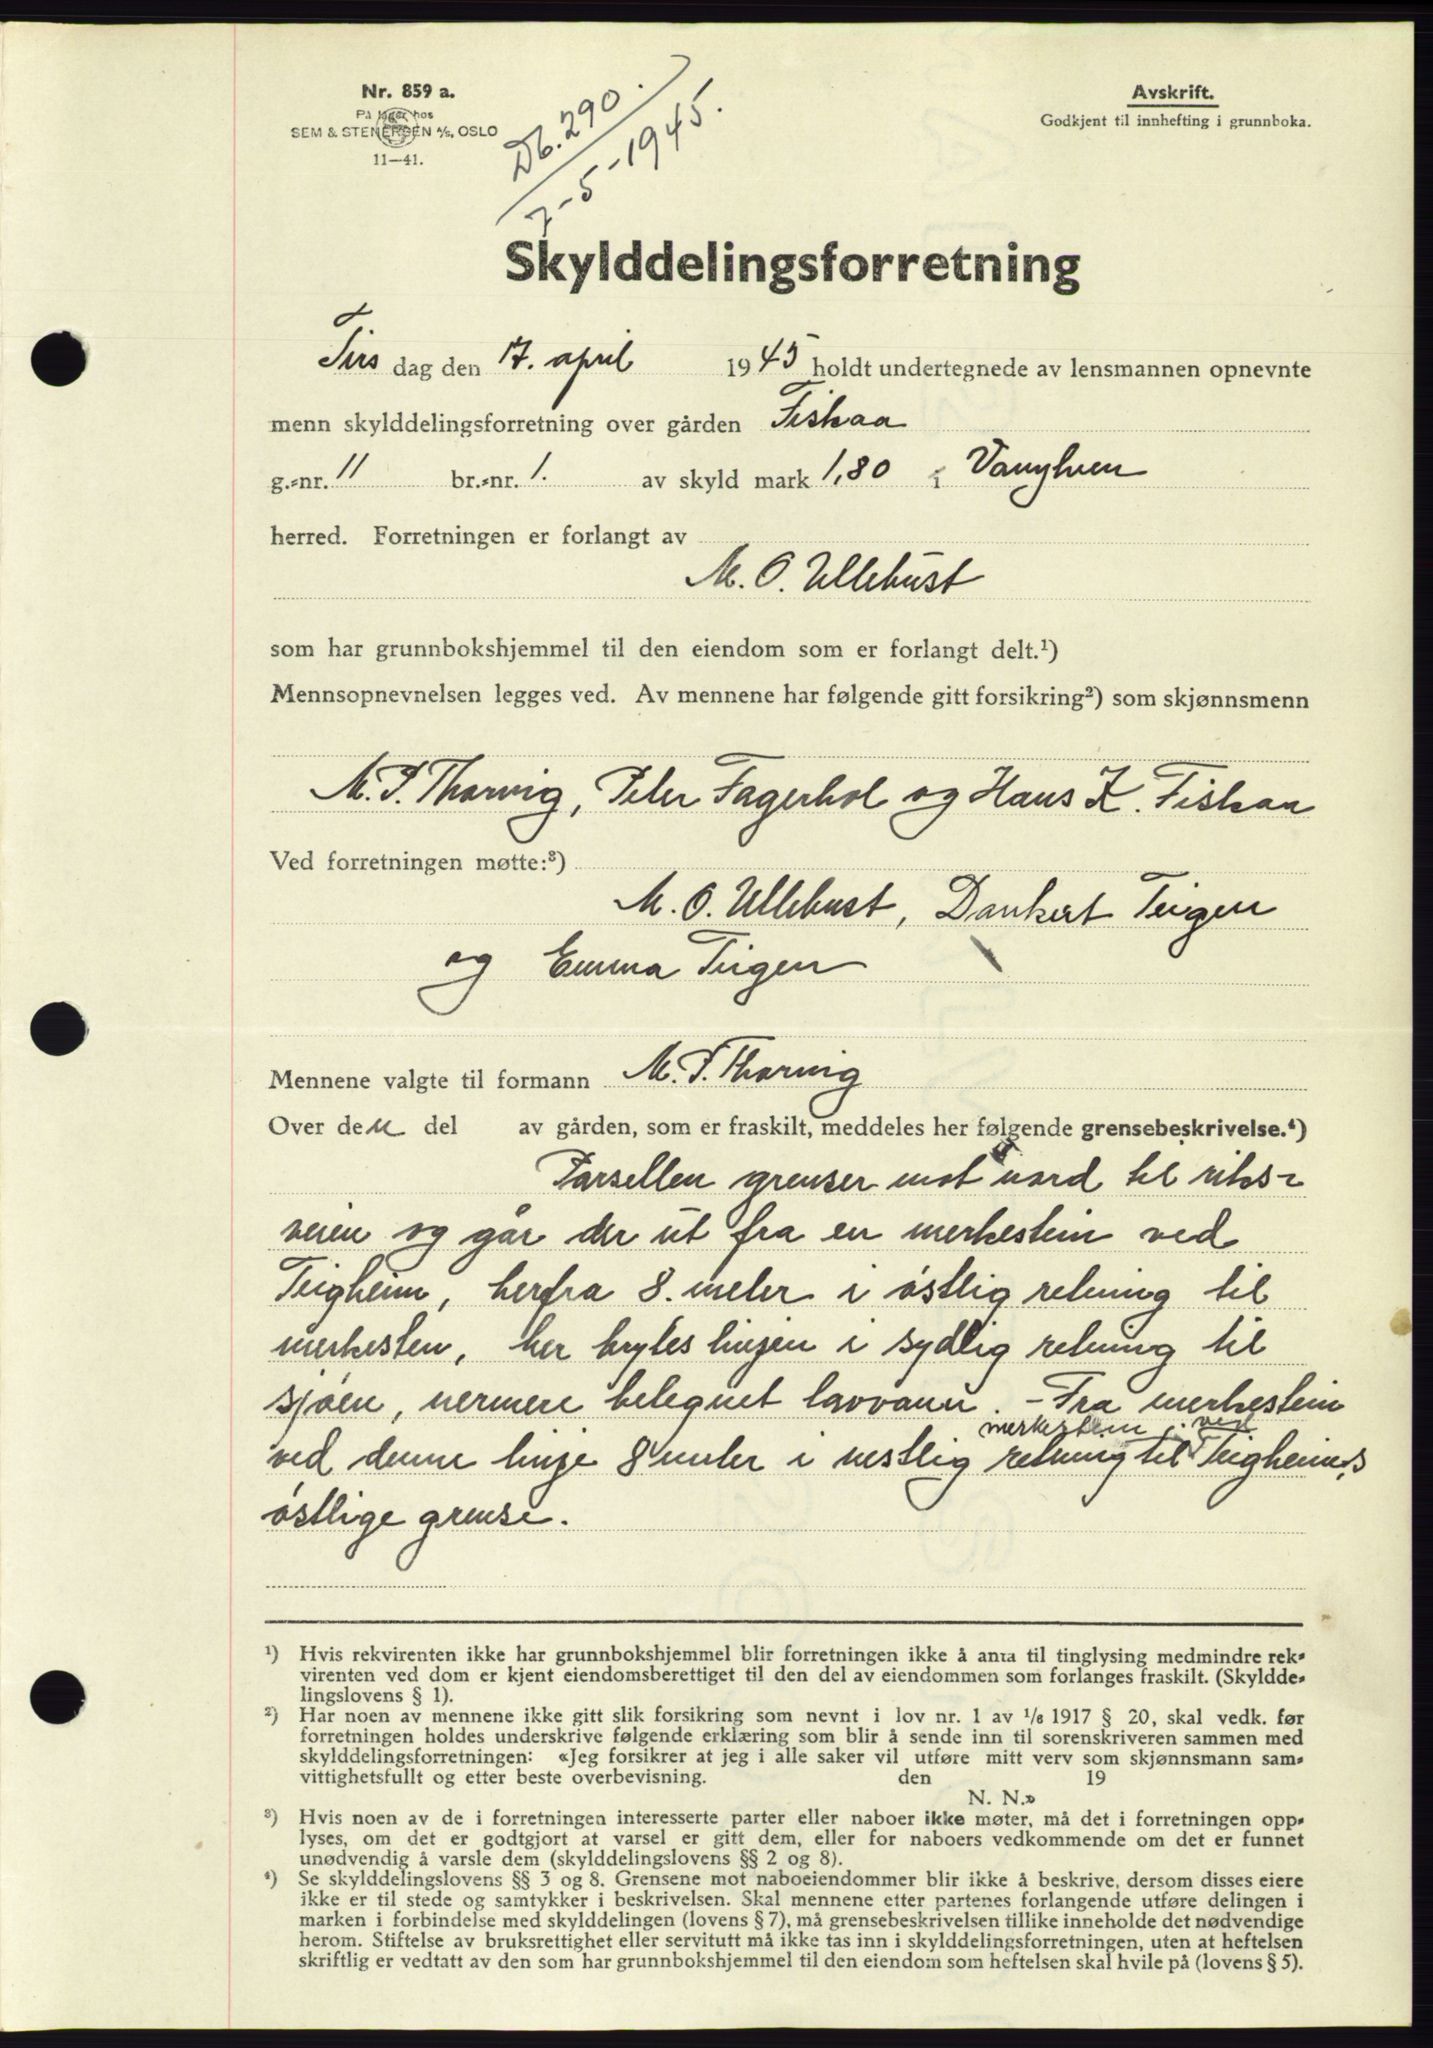 Nr. 859 a.
På lager hos
SEM & STENERSEN A/S, OSLO
11—41.
Db. 290.
7-5-1945.
Avskrift.
Godkjent til innhefting i grunnboka.
Skylddelingsforretning
Tirs dag den 17. april 1945 holdt undertegnede av lensmannen opnevnte
menn skylddelingsforretning over gården Fiskaa
g.-nr. 11 br.-nr. 1. av skyld mark 1,80 i Vanylven
herred. Forretningen er forlangt av
M. O. Ullebust
som har grunnbokshjemmel til den eiendom som er forlangt delt.¹)
Mennsopnevnelsen legges ved. Av mennene har følgende gitt forsikring²) som skjønnsmenn
M. P. Thorvig, Peter Fagerhol og Hans K. Fiskaa
Ved forretningen møtte:³)
M. O. Ullebust, Dankert Teigen
og Emma Teigen
Mennene valgte til formann M. P. Thorvig
Over den del av gården, som er fraskilt, meddeles her følgende grensebeskrivelse.⁴)
Parsellen grenser mot nord til riks-
veien og går der ut fra en merkestein ved
Teigheim, herfra 8. meter i østlig retning til
merkesten, her brytes linjen i sydlig retning til
sjøen, nermere betegnet lavvann. - Fra merkestein
merkestein ved
ved denne linje 8 meter i vestlig retning til Teigheims
østlige grense.
¹) Hvis rekvirenten ikke har grunnbokshjemmel blir forretningen ikke å anta til tinglysing medmindre rek-
virenten ved dom er kjent eiendomsberettiget til den del av eiendommen som forlanges fraskilt. (Skyldde-
lingslovens § 1).
²) Har noen av mennene ikke gitt slik forsikring som nevnt i lov nr. 1 av ¹/₆ 1917 § 20, skal vedk. før
forretningen holdes underskrive følgende erklæring som blir å sende inn til sorenskriveren sammen med
skylddelingsforretningen: «Jeg forsikrer at jeg i alle saker vil utføre mitt verv som skjønnsmann sam-
vittighetsfullt og etter beste overbevisning. den 19
N. N.»
³) Hvis noen av de i forretningen interesserte parter eller naboer ikke møter, må det i forretningen opp-
lyses, om det er godtgjort at varsel er gitt dem, eller for naboers vedkommende om det er funnet
unødvendig å varsle dem (skylddelingslovens §§ 2 og 8).
⁴) Se skylddelingslovens §§ 3 og 8. Grensene mot naboeiendommer blir ikke å beskrive, dersom disses eiere
ikke er til stede og samtykker i beskrivelsen. Skal mennene etter partenes forlangende utføre delingen i
marken i forbindelse med skylddelingen (lovens § 7), må grensebeskrivelsen tillike inneholde det nødvendige
herom. Stiftelse av bruksrettighet eller servitutt må ikke tas inn i skylddelingsforretningen, uten at heftelsen
skriftlig er vedtatt av den som har grunnbokshjemmel til den eiendom som heftelsen skal hvile på (lovens § 5).